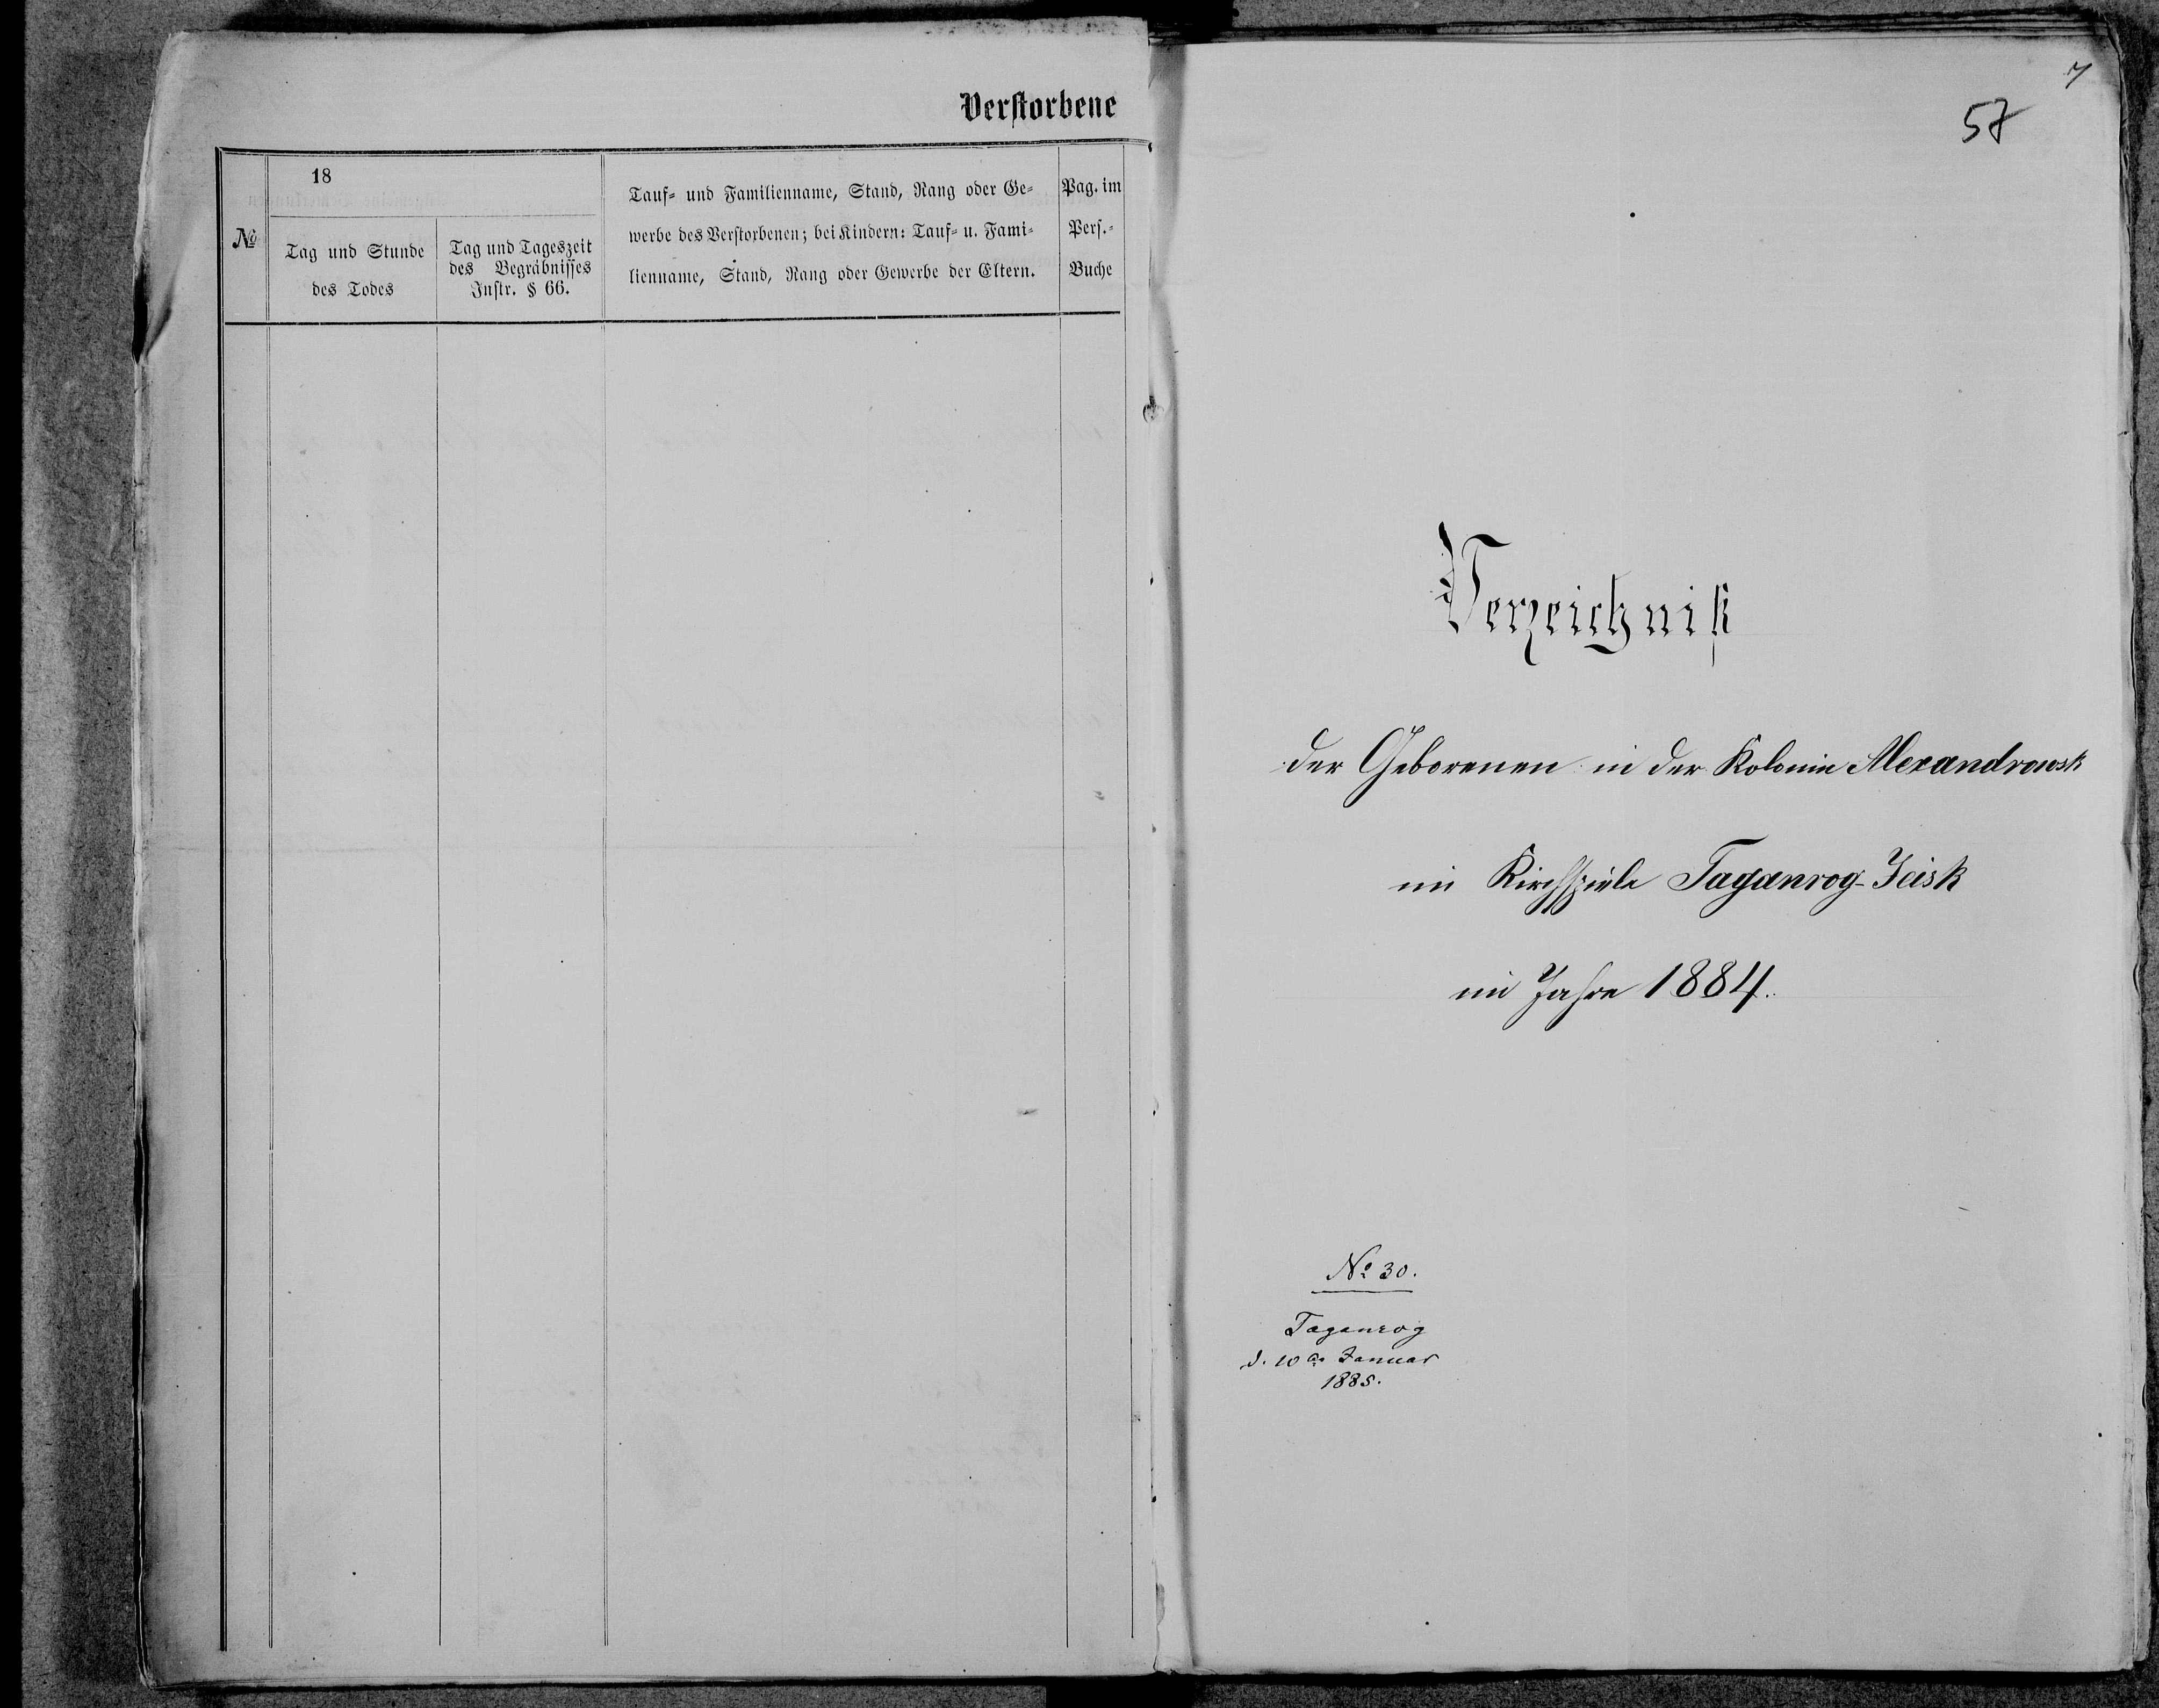 Verstorbene
№
18
Tag und Stunde
des Todes
Tag und Tageszeit
des Begräbnisses
Instr. § 66.
Tauf- und Familienname, Stand, Rang oder Ge-
werbe des Verstorbenen; bei Kindern: Tauf- u. Fami-
lienname, Stand, Rang oder Gewerbe der Eltern.
Pag. im
Pers.-
Buche
7
57
Verzeichniß
der Geborenen in der Kolonie Alexandrowsk
im Kirchspiele Taganrog-Jeisk
im Jahre 1884.
№ 30.
Taganrog
d. 10 Januar
1885.